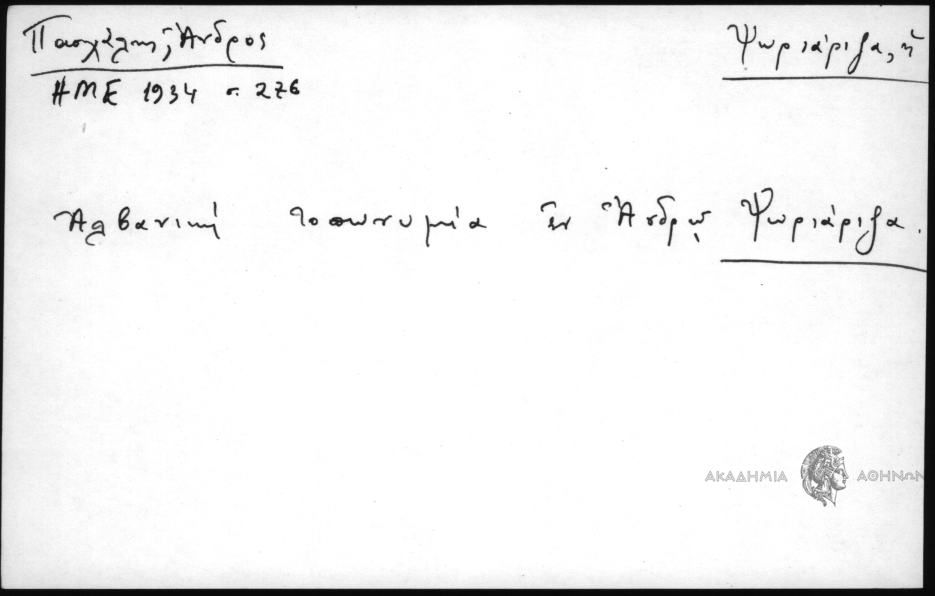 Πασχάλης, Ἄνδρος
Ψωριάριζα, ἡ
ΗΜΕ 1934 σ. 276
Ἀλβανική τοπωνυμία ἐν Ἄνδρῳ Ψωριάριζα.
ΑΚΑΔΗΜΙΑ ΑΘΗΝΩΝ